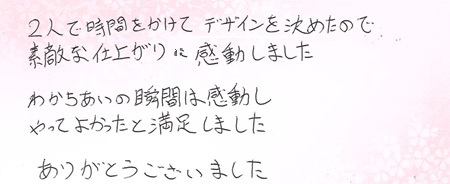 2人で時間をかけて デザインを決めたので
素敵な仕上がりに感動しました
わかちあいの瞬間は感動し
やってよかったと満足しました
ありがとうございました